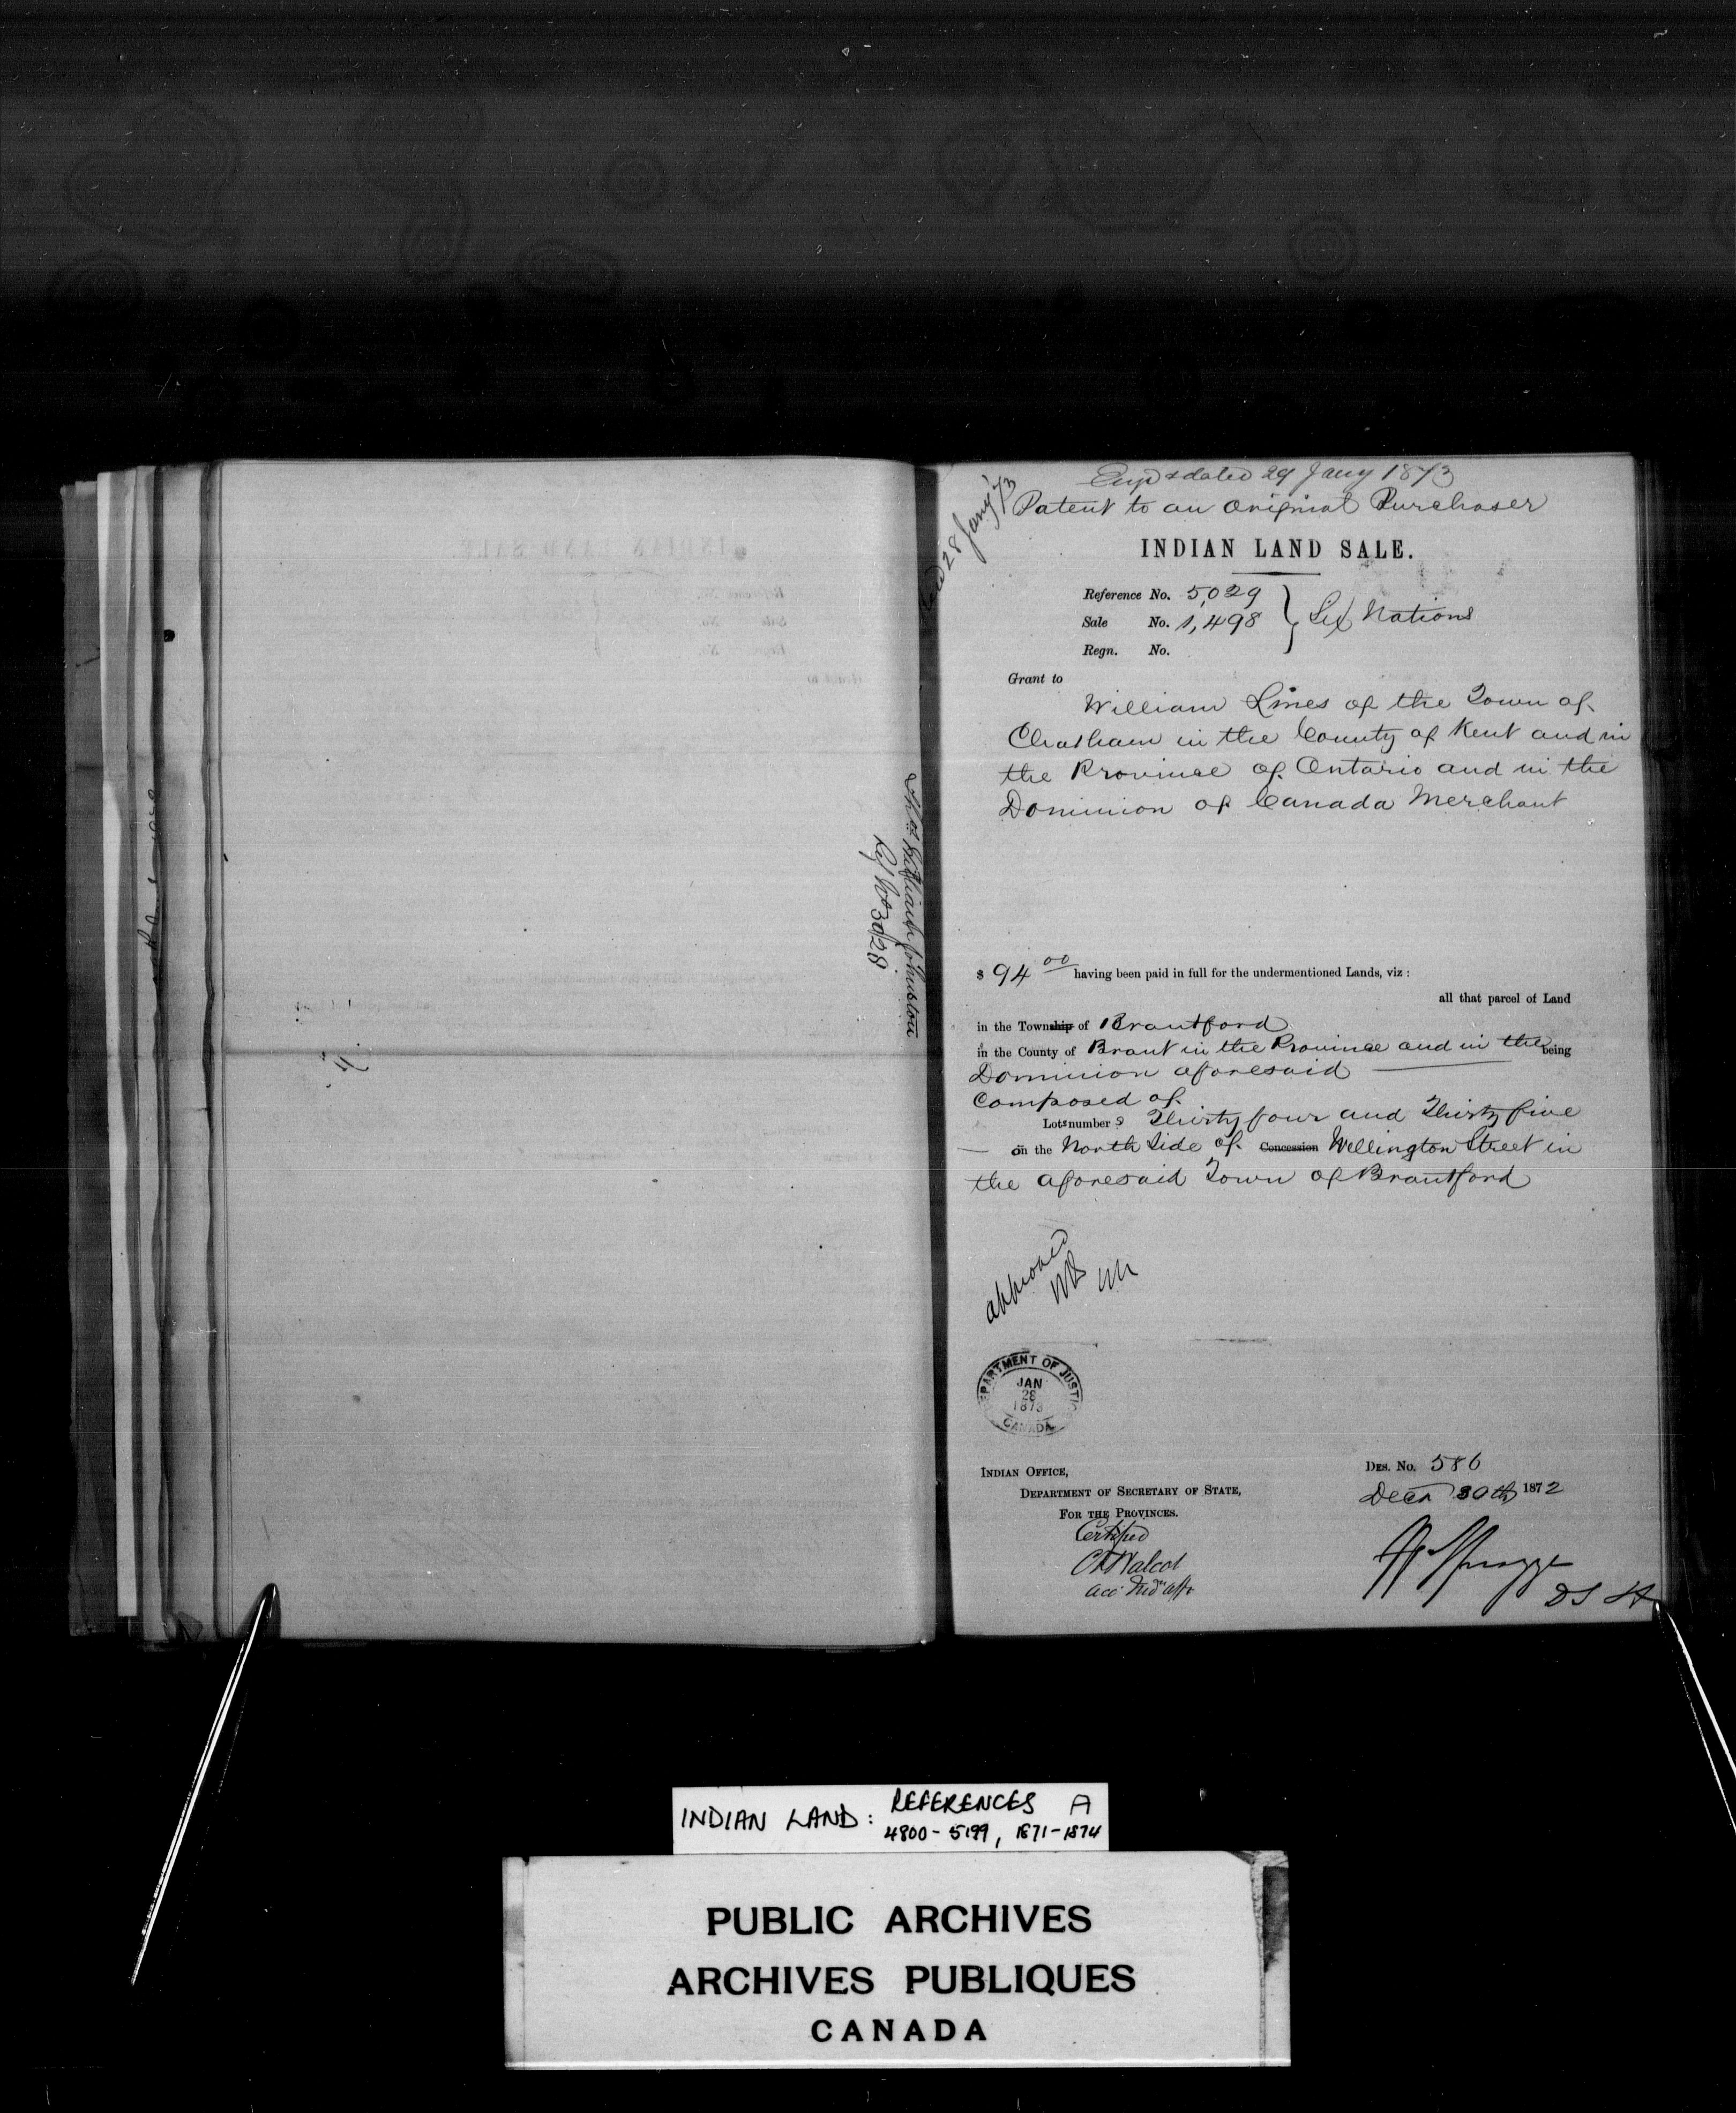 Thos William Johnston
Ref No 3028
Engd & dated 29 Jany 1873
28 Jany '73
Patent to an Original Purchaser
INDIAN LAND SALE.
Reference No. 5,029
Sale No. 1,498
Six Nations
Regn. No.
Grant to
William Lines of the Town of
Chatham in the County of Kent and in
the Province of Ontario and in the
Dominion of Canada Merchant
$ 94 00 having been paid in full for the undermentioned Lands, viz :
all that parcel of Land
in the Township of Brantford
in the County of Brant in the Province and in the being
Dominion aforesaid
Composed of
Lots number s Thirty four and Thirty five
on the North Side of Concession Wellington Street in
the aforesaid Town of Brantford
approved
DEPARTMENT OF JUSTICE
JAN
28
1873
CANADA
INDIAN OFFICE,
DEPARTMENT OF SECRETARY OF STATE,
FOR THE PROVINCES.
Certified
C T Walcot
acct Indn affs
DES. No. 586
Decr 30th 1872
W Spragge
D S I A
INDIAN LAND: REFERENCES A
4800-5199, 1871-1874
PUBLIC ARCHIVES
ARCHIVES PUBLIQUES
CANADA